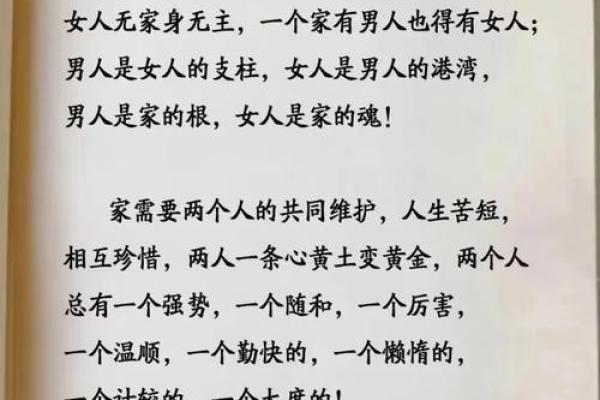 女人无家身无主，一个家有男人也得有女人；
男人是女人的支柱，女人是男人的港湾，
男人是家的根，女人是家的魂！
家需要两个人的共同维护，人生苦短，
相互珍惜，两人一条心黄土变黄金，两个人
总有一个强势，一个随和，一个厉害，
一个温顺，一个勤快的，一个懒惰的，
一个计较的，一个大度的！